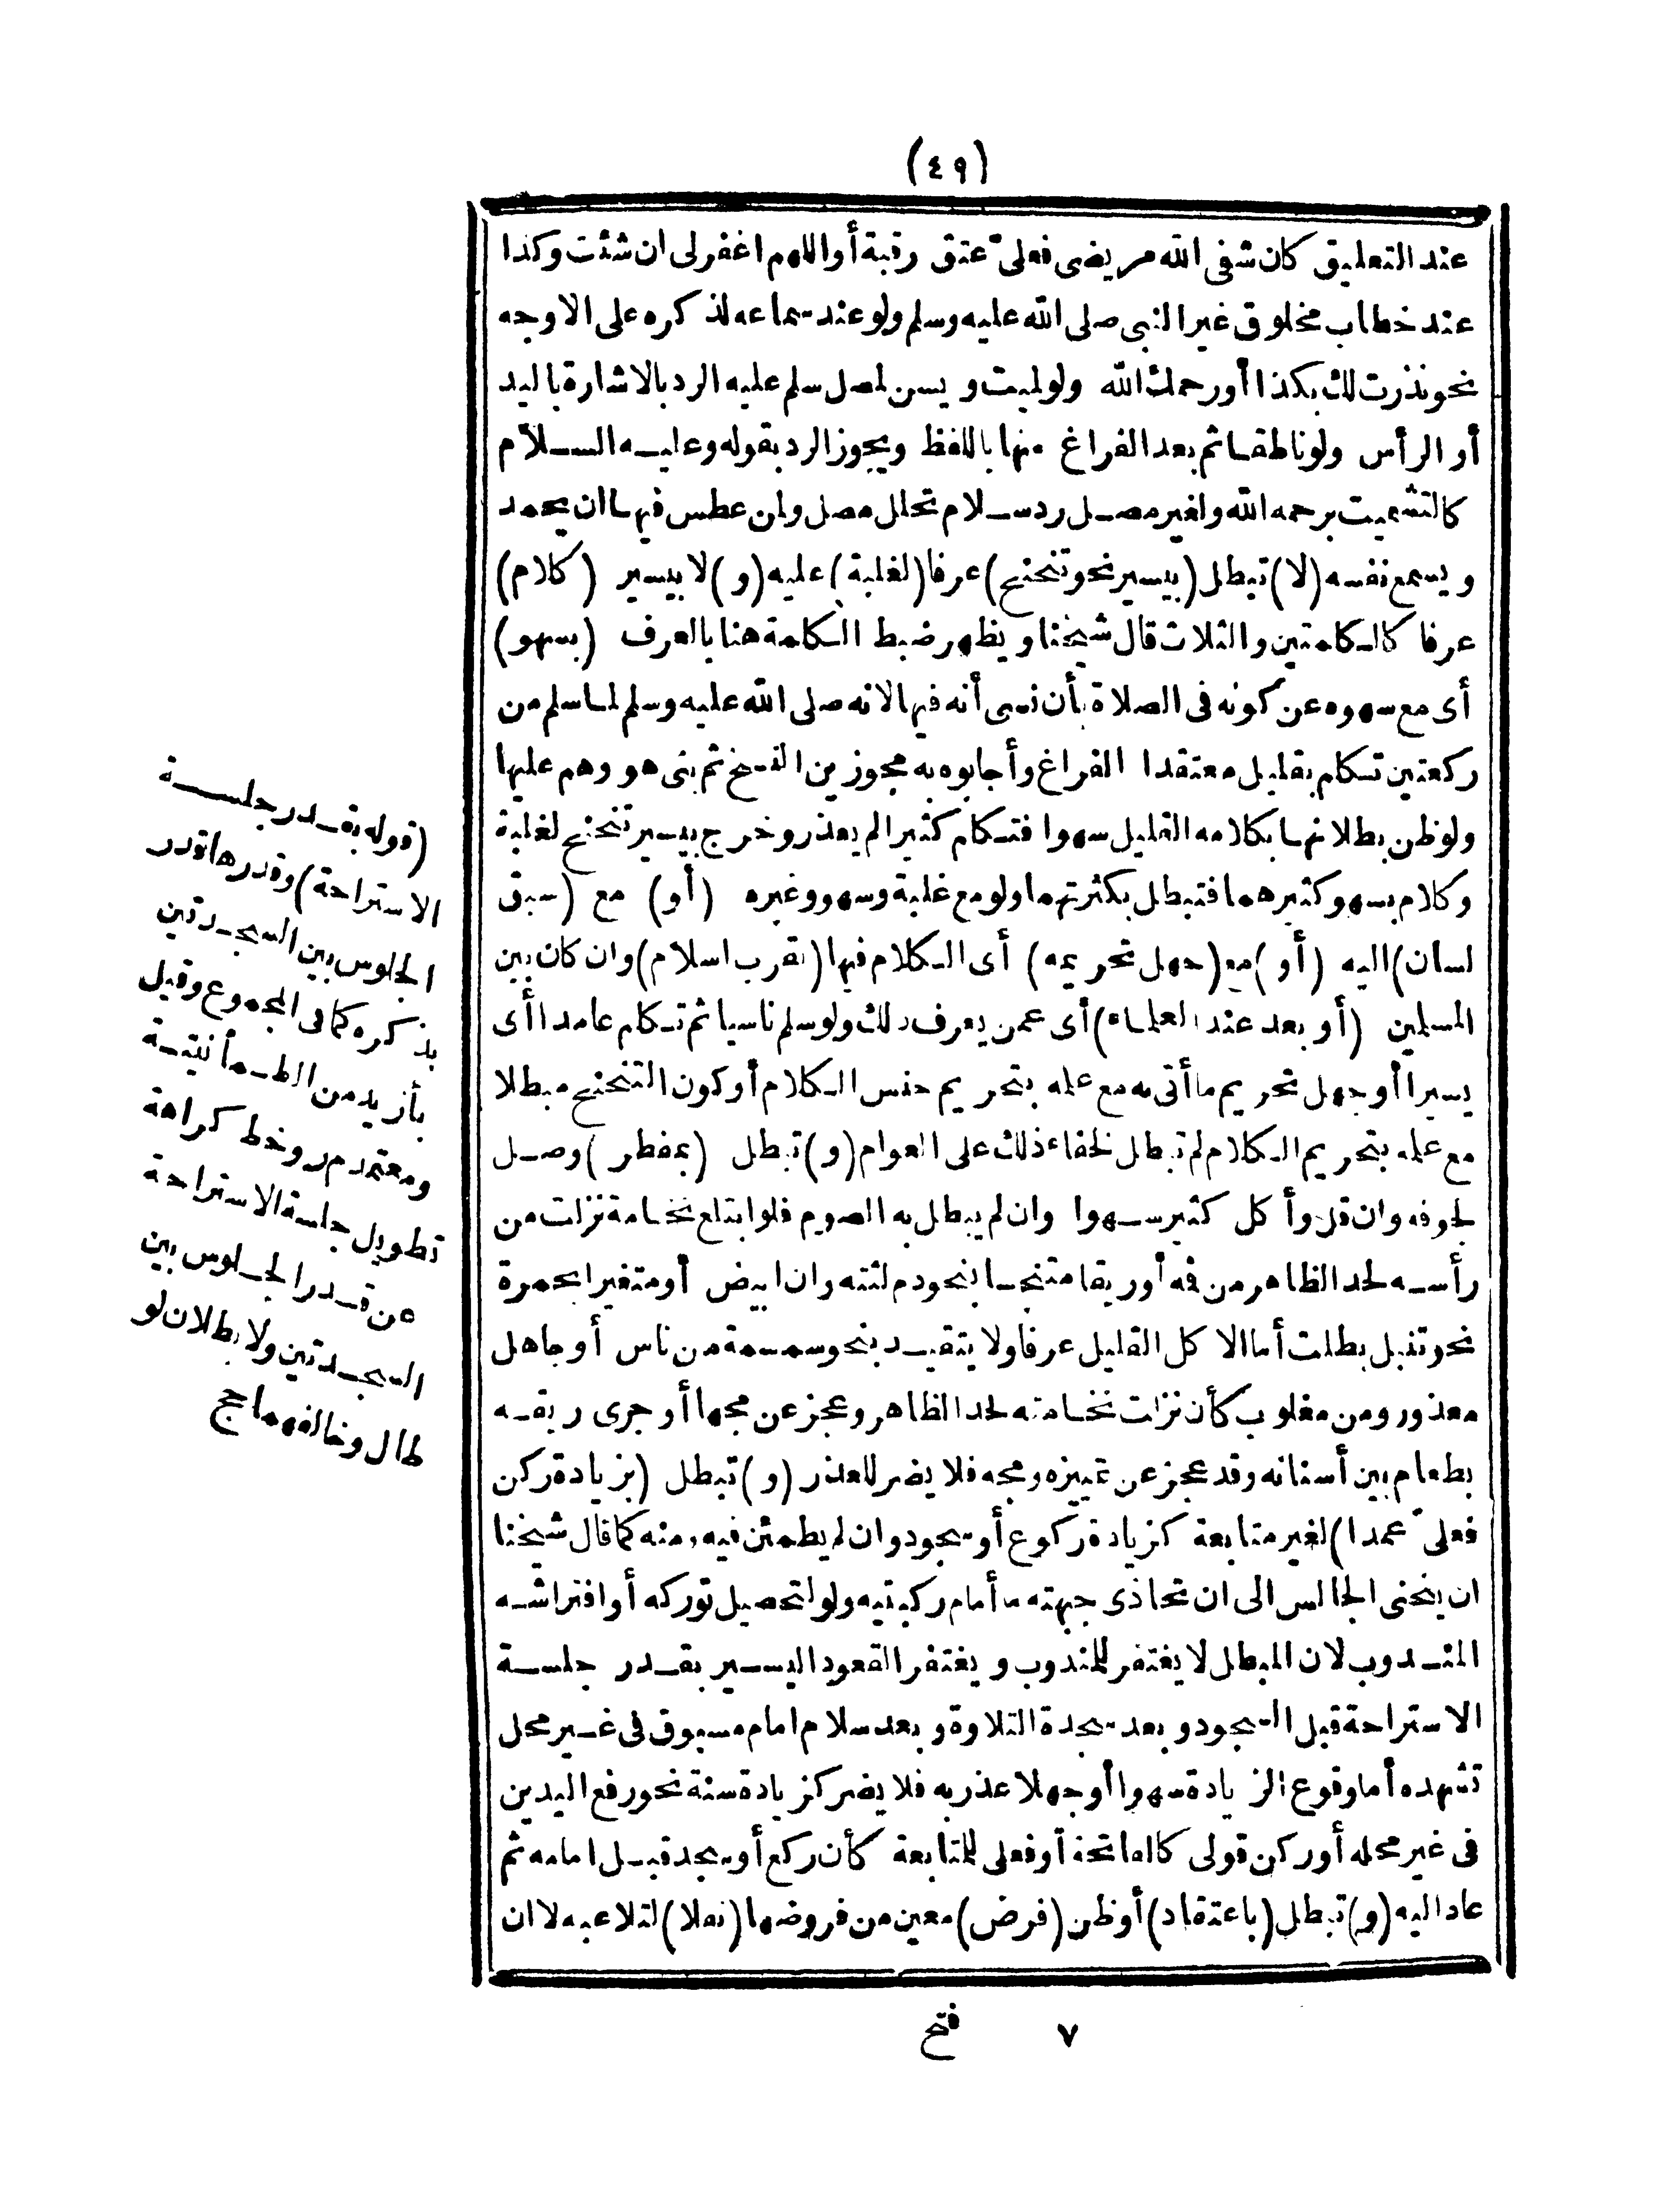 (٤٩)
عند التعليق كان شفى الله مريضى فعلىّ عتق رقبة أو اللهم اغفر لى ان شئت وكذا
عند خطاب مخلوق غير النبى صلى الله عليه وسلم ولو عند سماعه لذكره على الاوجه
نحو نذرت لك بكذا أو رحمك الله ولو لميت ويسن لمصل سلم عليه الرد بالاشارة باليد
أو الرأس ولو ناطقا ثم بعد الفراغ منها باللفظ ويجوز الرد بقوله وعليه السلام
كالتشميت برحمه الله ولغير مصل رد سلام تحلل مصل ولمن عطس فيها ان يحمد
ويسمع نفسه (لا) تبطل (بيسير نحو تنحنح) عرفا (لغلبة) عليه (و) لا بيسير (كلام)
عرفا كالكلمتين والثلاث قال شيخنا ويظهر ضبط الكلمة هنا بالعرف (بسهو)
أى مع سهوه عن كونه فى الصلاة بأن نسى أنه فيها لانه صلى الله عليه وسلم لما سلم من
ركعتين تكلم بقليل معتقدا الفراغ وأجابوه به مجوزين النسخ ثم بنى هو وهم عليها
ولو ظن بطلانها بكلامه القليل سهوا فتكلم كثيرا لم يعذر وخرج بيسير تنحنح لغلبة
وكلام بسهو كثيرهما فتبطل بكثرتهما ولو مع غلبة وسهو وغيره (أو) مع (سبق
لسان) اليه (أو) مع (جهل تحريمه) أى الكلام فيها (لقرب اسلام) وان كان بين
المسلمين (أو بعد عند العلماء) أى عمن يعرف ذلك ولو سلم ناسيا ثم تكلم عامدا أى
يسيرا أو جهل تحريم ما أتى به مع علمه بتحريم جنس الكلام أو كون التنحنح مبطلا
مع علمه بتحريم الكلام لم تبطل لخفاء ذلك على العوام (و) تبطل (بمفطر) وصل
لجوفه وان قل وأكل كثير سهوا وان لم يبطل به الصوم فلو ابتلع نخامة نزلت من
رأسه لحد الظاهر من فمه أو ريقا متنجسا بنحو دم لثته وان ابيض أو متغيرا بحمرة
نحو تنبل بطلت أما الاكل القليل عرفا ولا يتقيد بنحو سمسمة من ناس أو جاهل
معذور ومن مغلوب كأن نزلت نخامته لحد الظاهر وعجز عن مجها أو جرى ريقه
بطعام بين أسنانه وقد عجز عن تمييزه ومجه فلا يضر للعذر (و) تبطل (بزيادة ركن
فعلىّ عمدا) لغير متابعة كزيادة ركوع أو سجود وان لم يطمئن فيه ومنه كما قال شيخنا
ان ينحنى الجالس الى ان تحاذى جبهته ما أمام ركبتيه ولو لتحصيل توركه أو افتراشه
المندوب لان المبطل لا يغتفر للمندوب ويغتفر القعود اليسير بقدر جلسة
الاستراحة قبل السجود وبعد سجدة التلاوة وبعد سلام امام مسبوق فى غير محل
تشهده أما وقوع الزيادة سهوا أو جهلا عذر به فلا يضر كزيادة سنة نحو رفع اليدين
فى غير محله أو ركن قولى كالفاتحة أو فعلى للمتابعة كأن ركع أو سجد قبل امامه ثم
عاد اليه (و) تبطل (باعتقاد) أو ظن (فرض) معين من فروضها (نفلا) لتلاعبه لا ان
(قوله بقدر جلسة
الاستراحة) وقدرها قدر
الجلوس بين السجدتين
بذكره كما فى المجموع وقيل
بأزيد من الطمأنينة
ومعتمد م ر وخط كراهة
تطويل جلسة الاستراحة
عن قدر الجلوس بين
السجدتين ولا بطلان لو
طال وخالفهما حج
٧ فتح